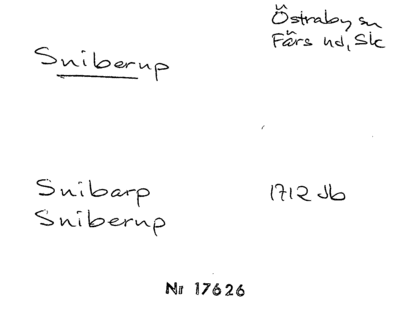 Östraby sn
Färs hd, Sk
Sniberup
Snibarp 1712 Jb
Sniberup
Nr 17626